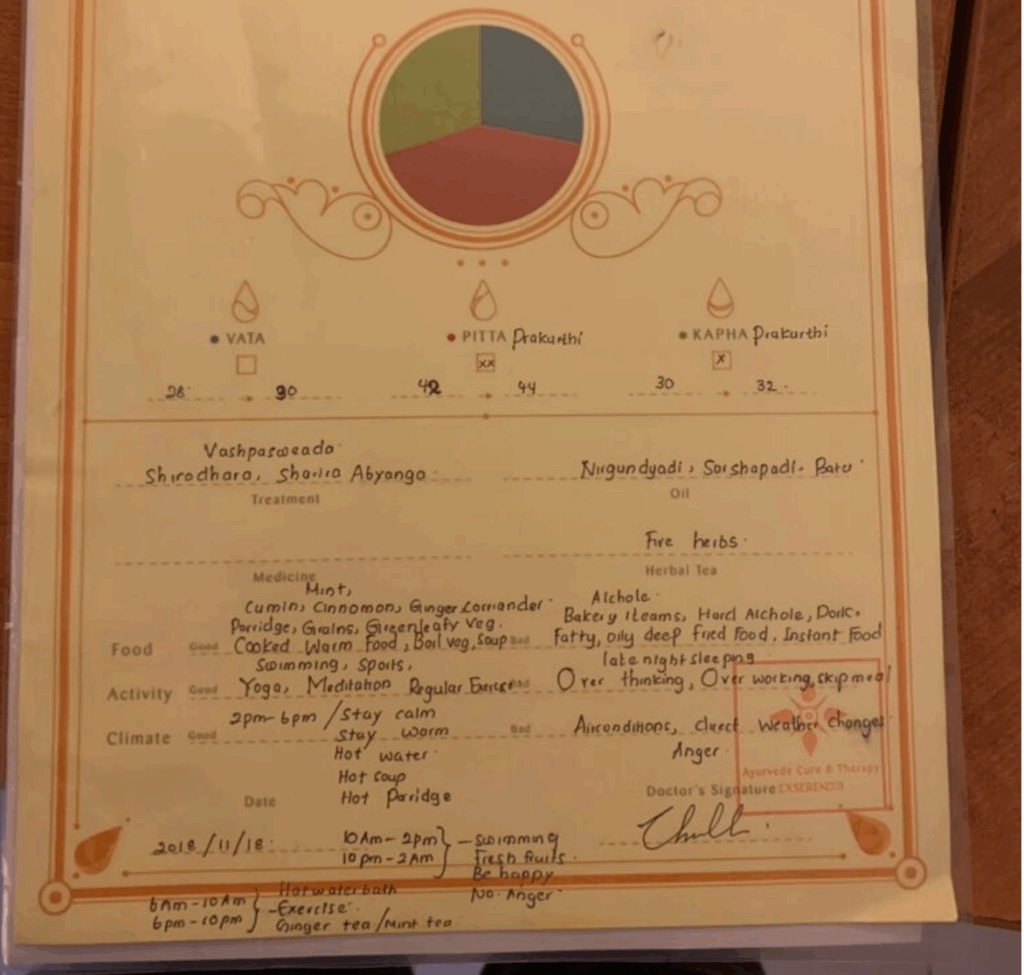 VATA
PITTA Prakurthi
KAPHA Prakurthi
xx
x
28 → 30
42 → 44
30 → 32
Vashpasweada
Shirodhara, Sharira Abyanga
Treatment
Nirgundyadi, Sarshapadi
Oil
Medicine
Five herbs
Herbal Tea
Mint,
Cumin, Cinnomon, Ginger Corriander
Porridge, Grains, Greenleafy Veg.
Food Good Cooked Warm Food, Boil veg, Soup
Alchole
Bakery Iteams, Hard Alchole,
Bad Fatty, oily deep fried Food, Instant Food
Swimming, Sports,
Activity Good Yoga, Meditation Regular
late night sleeping
Bad Over thinking, Over working, skip meal
2pm-6pm / Stay calm
Climate Good Stay worm
Hot water
Hot Soup
Hot Porridge
Bad Airconditions, direct weather changes
Anger
Date
2018/11/18
Doctor's Signature
Ayurveda Cure & Therapy
10Am - 2pm
10pm - 2Am
- Swimming
Fresh fruits
Be happy
No Anger
6Am - 10Am
6pm - 10pm
Hot water bath
- Exercise
Ginger tea / Mint tea